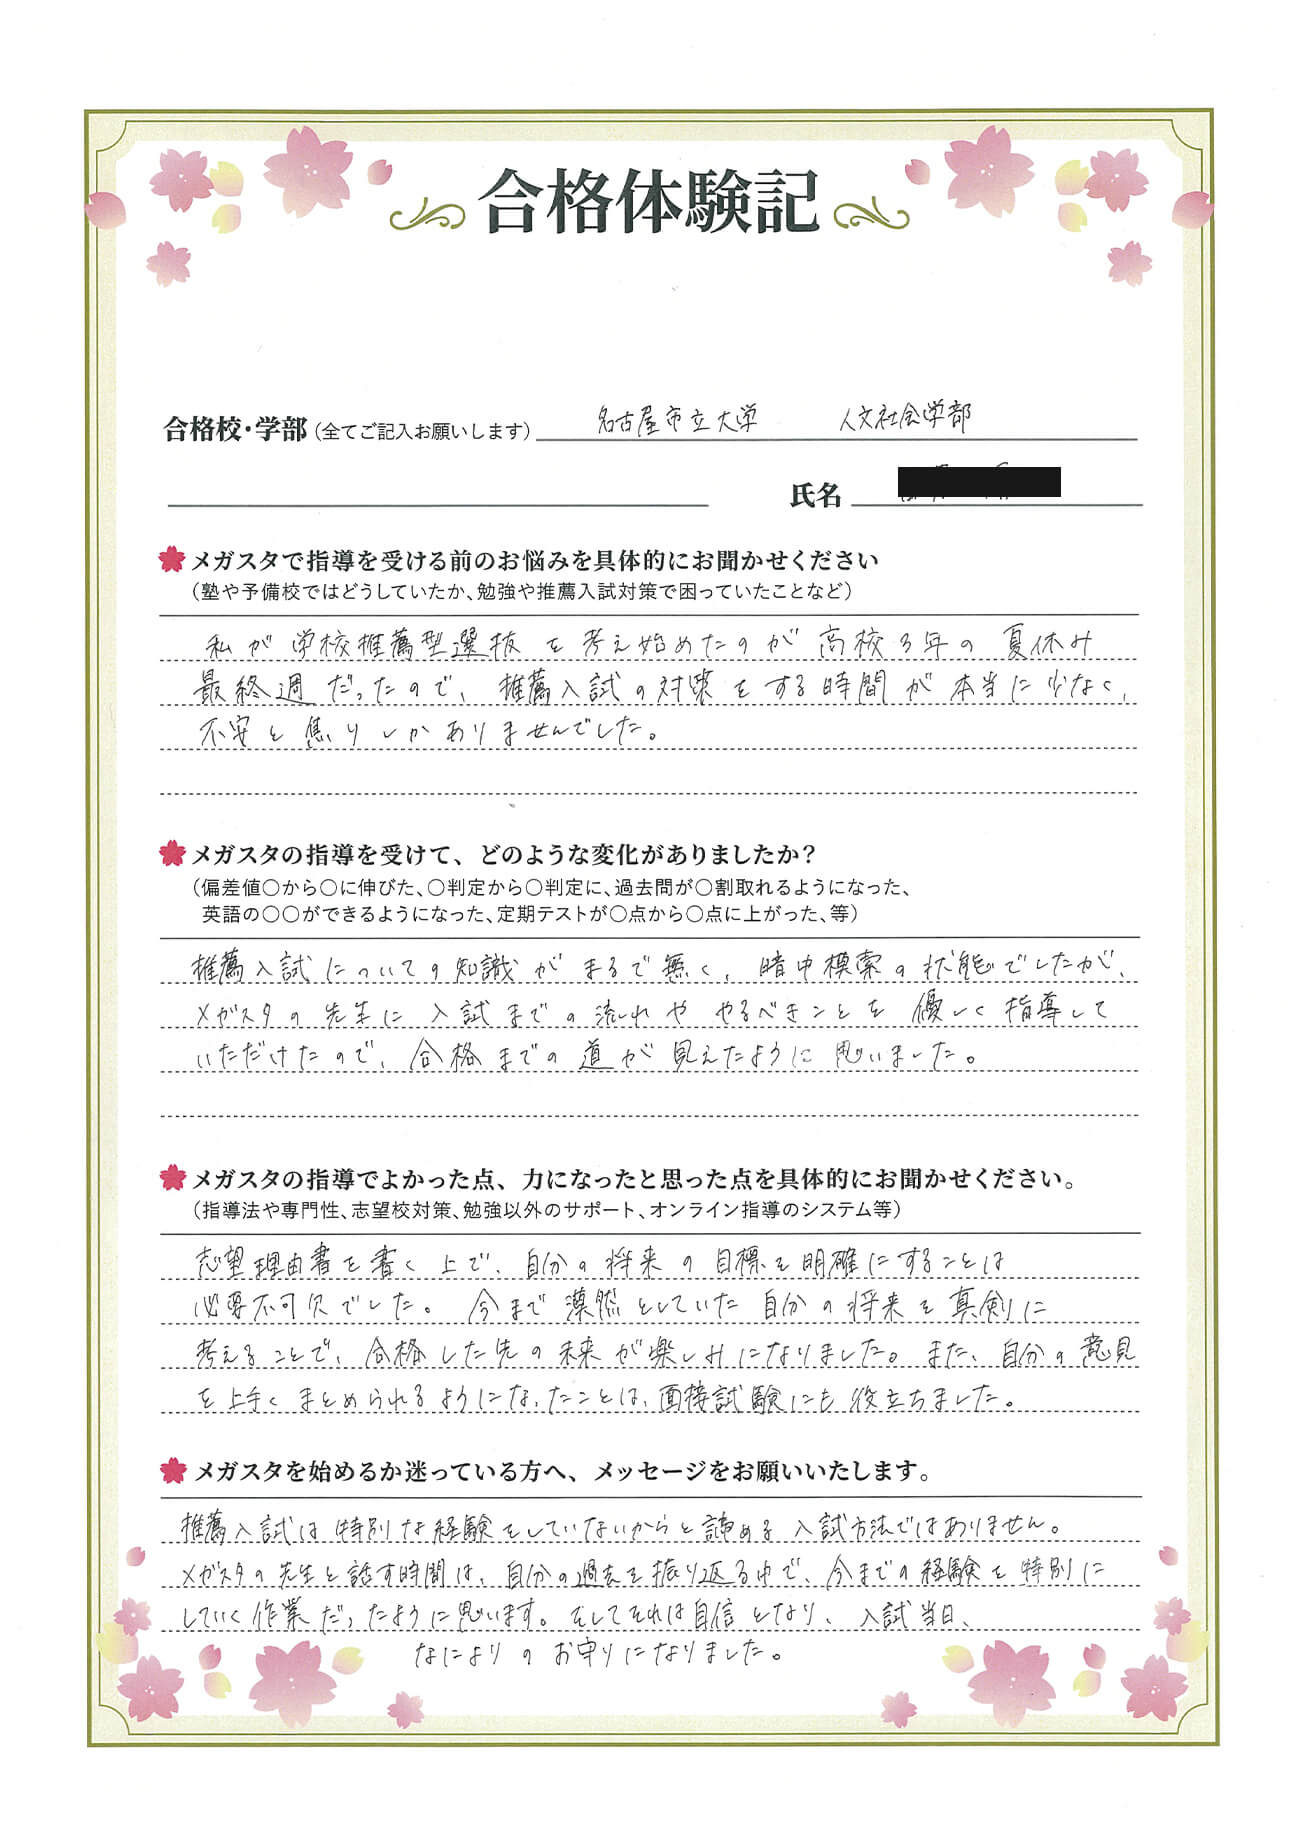 合格体験記
合格校・学部(全てご記入お願いします) 名古屋市立大学 人文社会学部
氏名
メガスタで指導を受ける前のお悩みを具体的にお聞かせください
(塾や予備校ではどうしていたか、勉強や推薦入試対策で困っていたことなど)
私が学校推薦型選抜を考え始めたのが高校3年の夏休み
最終週だったので、推薦入試の対策をする時間が本当に少なく、
不安と焦りしかありませんでした。
メガスタの指導を受けて、どのような変化がありましたか?
(偏差値〇から〇に伸びた、〇判定から〇判定に、過去問が〇割取れるようになった、
英語の〇〇ができるようになった、定期テストが〇点から〇点に上がった、等)
推薦入試についての知識がまるで無く、暗中模索の状態でしたが、
メガスタの先生に入試までの流れややるべきことを優しく指導して
いただけたので、合格までの道が見えたように思いました。
メガスタの指導でよかった点、力になったと思った点を具体的にお聞かせください。
(指導法や専門性、志望校対策、勉強以外のサポート、オンライン指導のシステム等)
志望理由書を書く上で、自分の将来の目標を明確にすることは
必要不可欠でした。今まで漠然としていた自分の将来を真剣に
考えることで、合格した先の未来が楽しみになりました。また、自分の意見
を上手くまとめられるようになったことは、面接試験にも役立ちました。
メガスタを始めるか迷っている方へ、メッセージをお願いいたします。
推薦入試は特別な経験をしていないからと諦める入試方法ではありません。
メガスタの先生と話す時間は、自分の過去を振り返る中で、今までの経験を特別に
していく作業だったように思います。そしてそれは自信となり、入試当日、
なによりのお守りになりました。